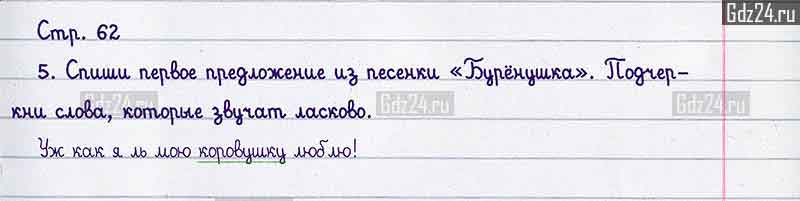 Gdz24.ru
Стр. 62
5. Спиши первое предложение из песенки «Бурёнушка». Подчер-
кни слова, которые звучат ласково.
Gdz24.ru Gdz24.ru Gdz24.ru
Уж как я ль мою коровушку люблю!